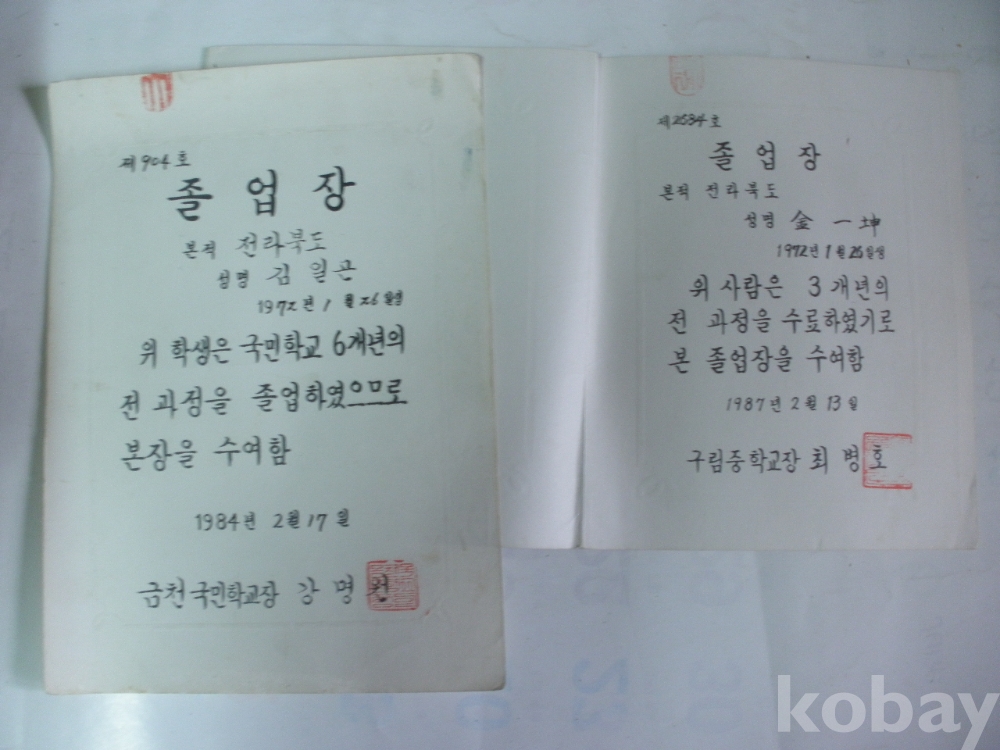 제904호
졸업장
본적 전라북도
성명 김일곤
1972년 1월 26일생
위 학생은 국민학교 6개년의
전 과정을 졸업하였으므로
본장을 수여함
1984년 2월 17일
금천국민학교장 강명원
제2684호
졸업장
본적 전라북도
성명 金一坤
1972년 1월 26일생
위 사람은 3개년의
전 과정을 수료하였기로
본 졸업장을 수여함
1987년 2월 13일
구림중학교장 최병호
kobay